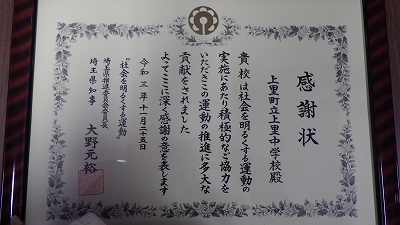 感謝状
上里町立上里中学校殿
貴校は社会を明るくする運動の
実施にあたり積極的なご協力を
いただきこの運動の推進に多大な
貢献をされました
よってここに深く感謝の意を表します
令和三年十一月二十五日
“社会を明るくする運動”
埼玉県推進委員会委員長
埼玉県知事 大野元裕